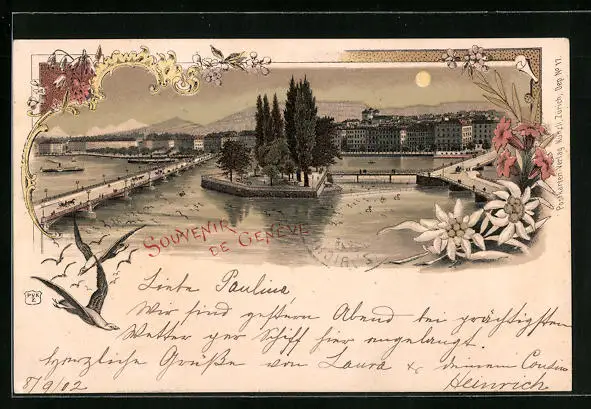 SOUVENIR
DE GENÈVE
Postkarten-Verlag Künzli, Zürich, Dep. No 17.
PVK
Z
Liebe Paulina
Wir sind gestern Abend bei prächtigstem
Wetter per Schiff hier angelangt.
Herzliche Grüße von Laura & deinem Cousin
8/9/02 Heinrich